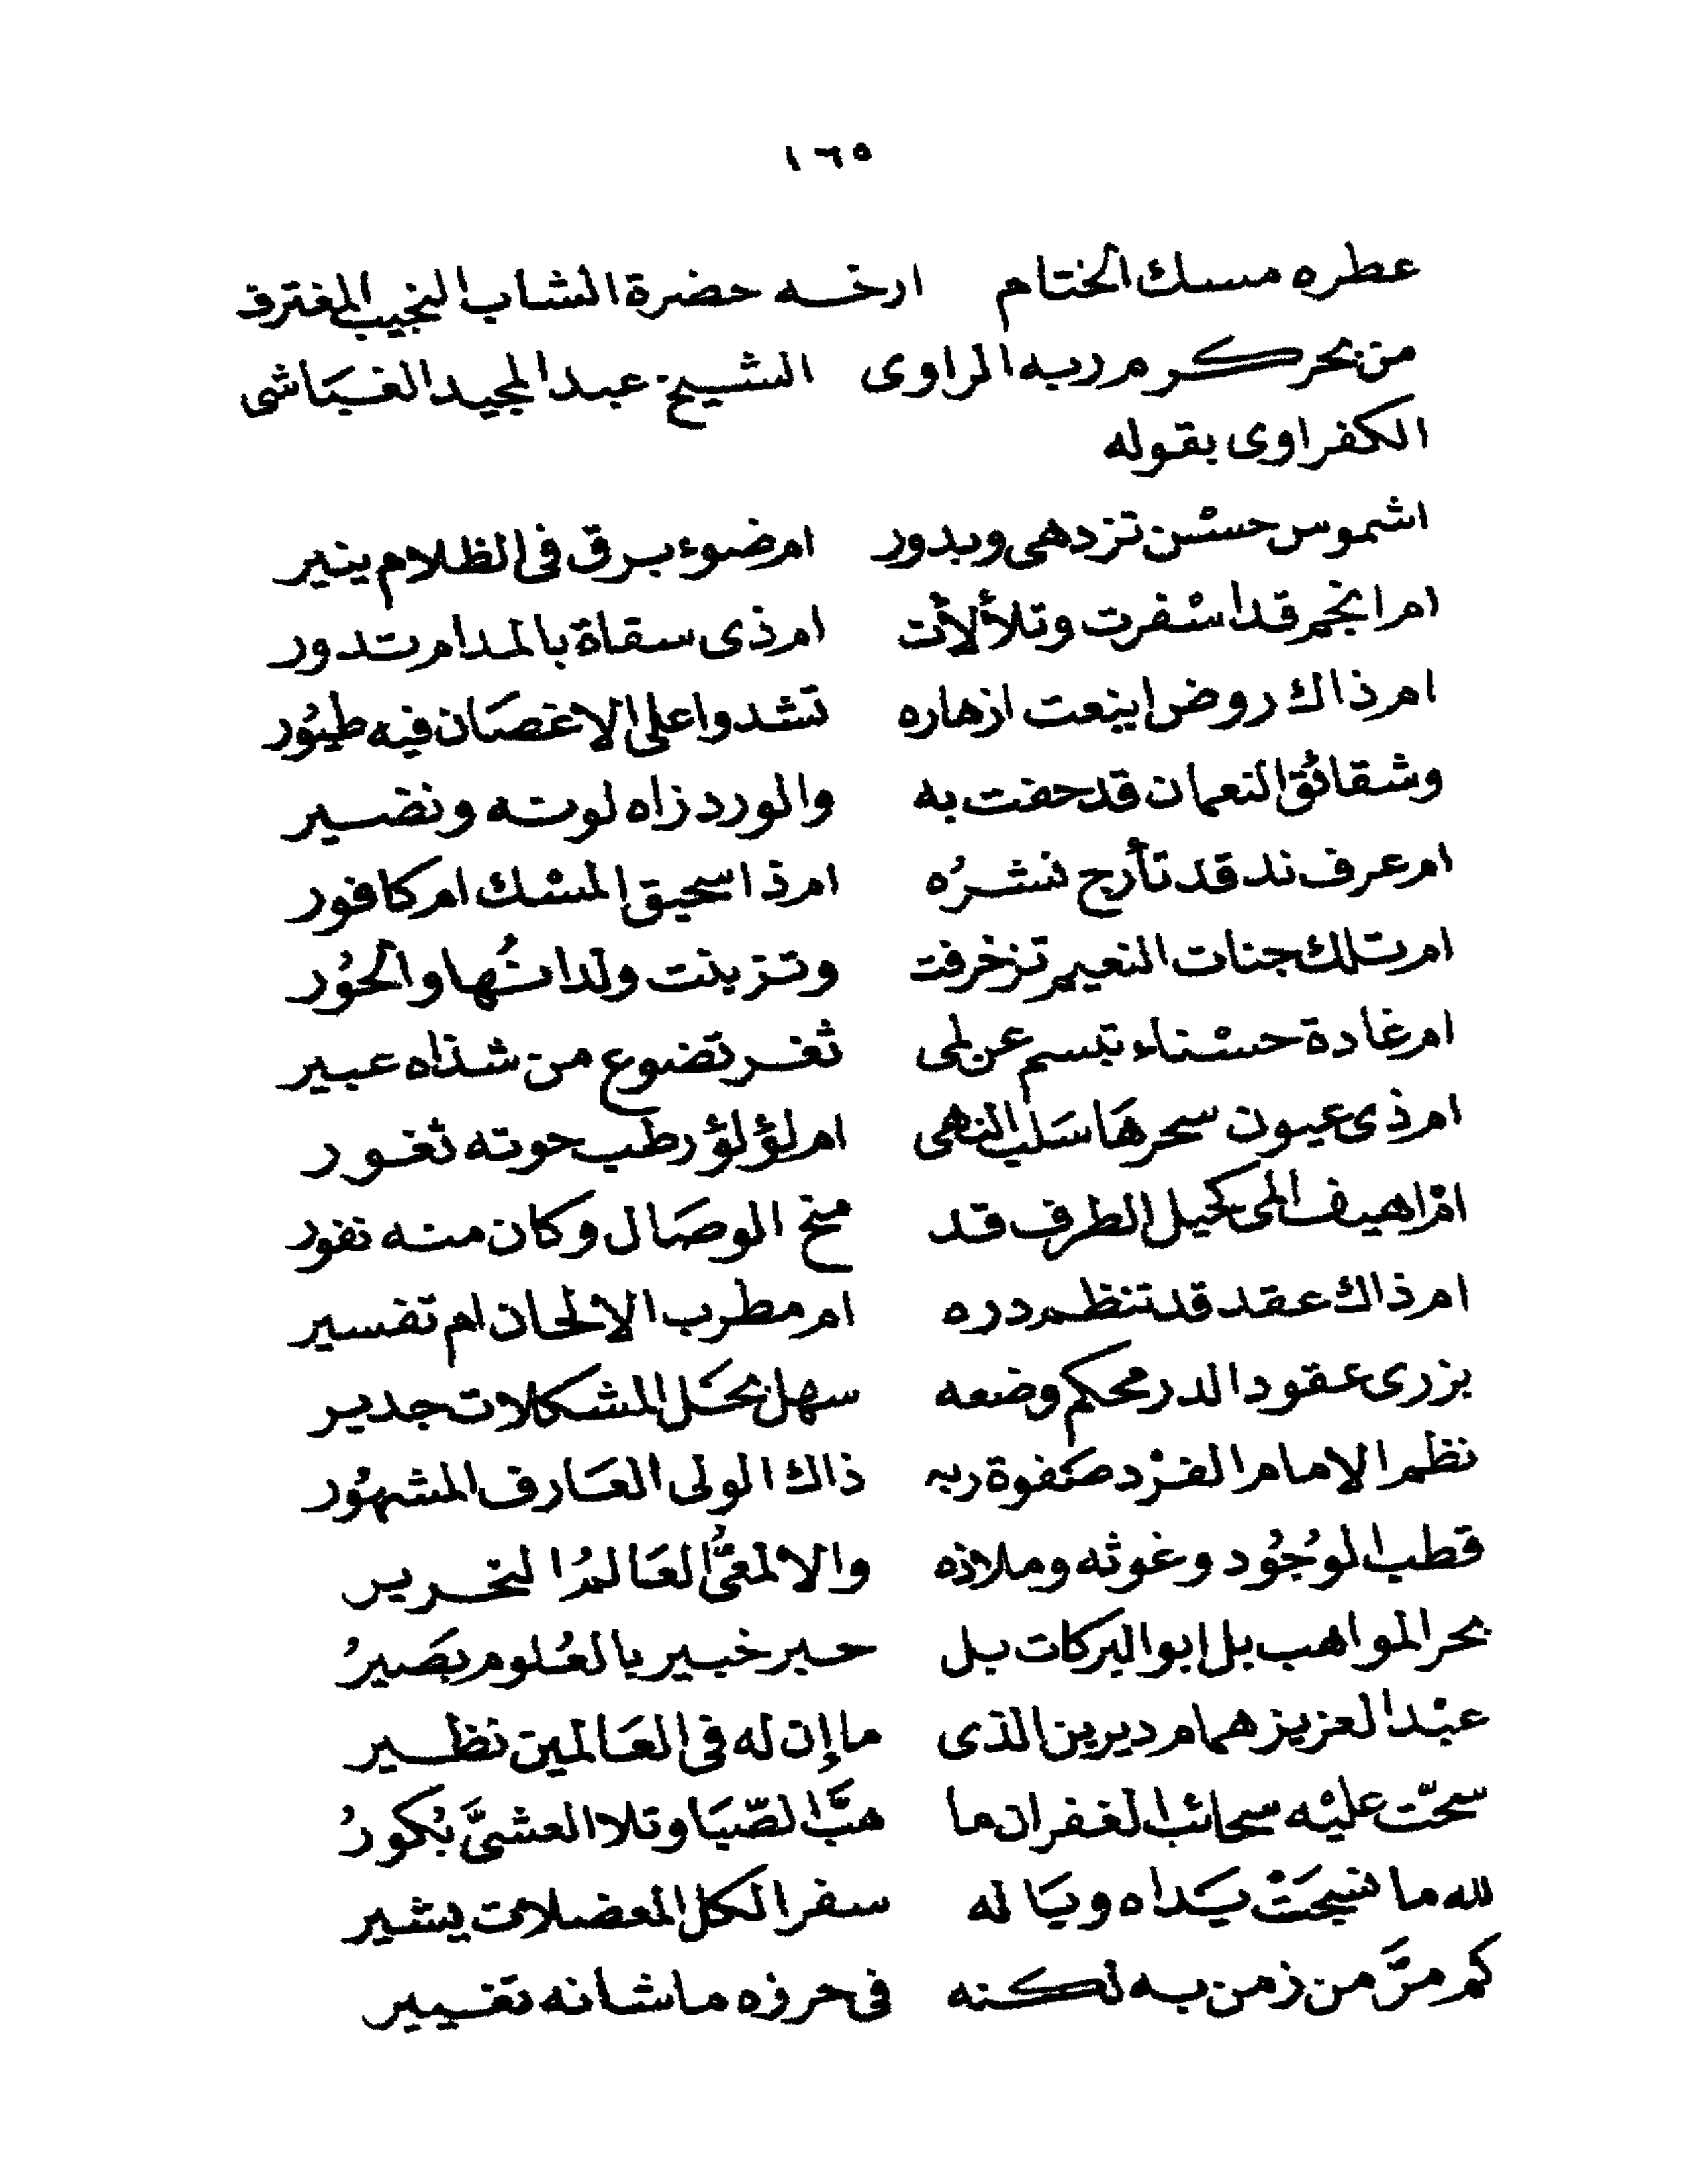 ١٦٥
عطره مسك الختام ارخه حضرة الشاب النجيب المغترف
من بحر كرم ربه الراوى الشيخ عبد المجيد الغباشى
الكفراوى بقوله
اشموس حسْن تزدهى وبدور ام ضوء برق فى الظلام ينير
ام انجم قد اسْفرت وتلألأت ام ذى سقاة بالمدام تدور
ام ذاك روض اينعت ازهاره تشدوا على الاغصَان فيه طيُور
وشقائق النعمان قد حفت به والورد زاه لونه ونضير
ام عرف ند قد تأرج نشرُه ام ذا سحيق المسْك ام كافور
ام تلك جنات النعيم تزخرفت وتزينت ولدانُها والحُور
ام غادة حسْناء تبسم عن لمى ثغر تضوع من شذاه عبير
ام ذى عيون سحرهَا سَلب النهى ام لؤلؤ رطب حوته ثغور
امْ اهيف المى كحيل الطرف قد منح الوصَال وكان منه نفور
ام ذاك عقد قد تنظم دره ام مطرب الالحان ام تفسير
يزرى عقود الدر محكم وضعه سهل بحَل المشكلات جدير
نظم الامام الفرْد صَفوة ربه ذاك الولى العَارف المشهُور
قطب الوُجُود وغوثه وملاذه والالمعىُّ العَالمُ النحرير
بحر المواهب بل ابو البركات بل حبر خبير بالعُلوم بصَيرُ
عبْد العزيز همام ديرين الذى ما إن له فى العَالمين نظير
سحّت عليْه سحائب الغفران ما هبَّ الصّبَا وتلا العشىَّ بُكورُ
لله ما نسجَتْ يَداه ويَا له سفرا لكل المعضلات يشير
كم مرَّ من زمن به لكنه فى حرزه ما شانه تغيير